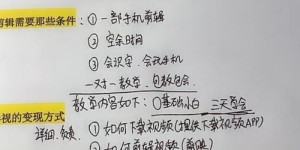 剪辑需要那些条件：① 一部手机剪辑
② 空余时间
③ 会识字、会玩手机
一对一教学，包教包会
教学内容如下：①基础小白 三天学会
视的变现方式
详细、负责 ① 如何下载视频（提供下载视频APP）
② 如何剪辑视频（剪映）